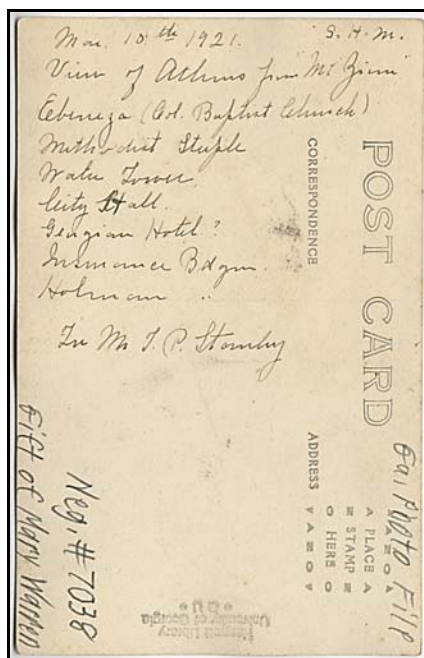 Mar. 10th 1921. S.H.M.
View of Athens from "Mt Zion"
Ebeneza (Col. Baptist Church)
Methodist Steple
Water Tower
City Hall.
Georgian Hotel?
Insurance Bdgm.
Holman "
To Mr T. P. Stanley
POST CARD
CORRESPONDENCE
ADDRESS
PLACE
STAMP
HERE
Ga. Photo File
Neg. # 7038
Gift of Mary Warren
Library
University of Georgia